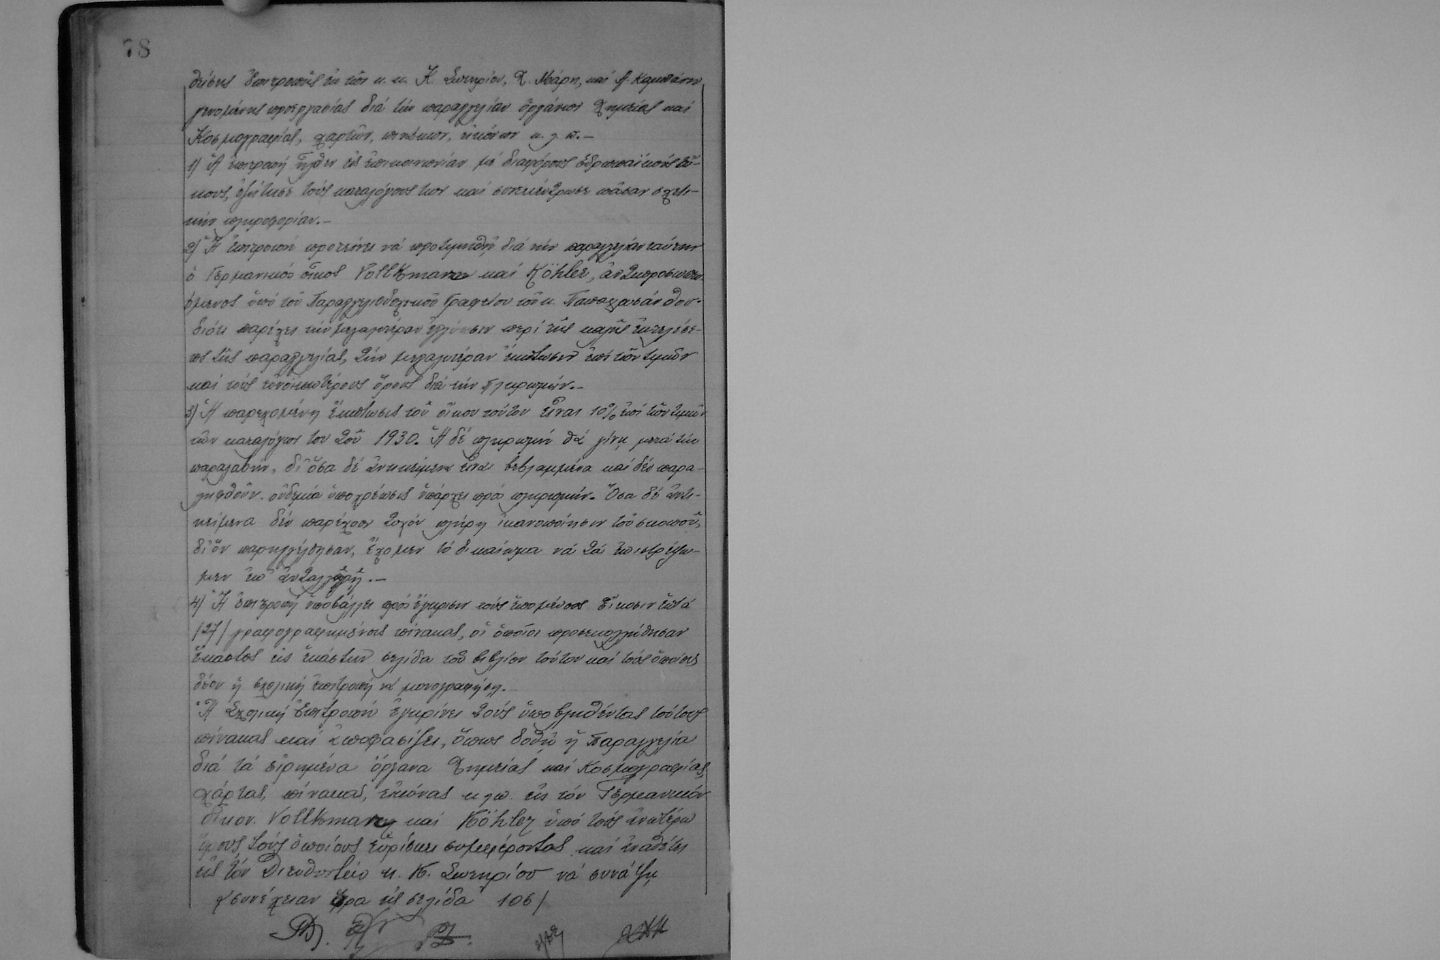 78
θείσης Ἐπιτροπῆς ἐκ τῶν κ. κ. Κ. Σωτηρίου, Χ. Μάρη, καὶ
γενομένης προεργασίας διὰ τὴν παραγγελίαν ὀργάνων Χημείας καὶ
Κοσμογραφίας, χαρτῶν, πινάκων, εἰκόνων κ. λ. π.—
1) Ἡ ἐπιτροπὴ ἦλθεν εἰς ἐπικοινωνίαν μὲ διαφόρους εὐρωπαϊκοὺς οἴ-
κους, ἐζήτησε τοὺς καταλόγους των καὶ συνεκέντρωσε πᾶσαν σχετι-
κὴν πληροφορίαν.—
2) Ἡ ἐπιτροπὴ προτείνει νὰ προτιμηθῇ διὰ τὴν παραγγελίαν ταύτην
ὁ Γερμανικὸς οἶκος Vollkmann καὶ Köhler, ἀντιπροσωπευ-
όμενος ὑπὸ τοῦ Παραγγελιοδοχικοῦ Γραφείου τοῦ κ.
διότι παρέχει τὴν μεγαλυτέραν ἐγγύησιν περὶ τῆς καλῆς ἐκτελέσε-
ως τῆς παραγγελίας, τὴν μεγαλυτέραν ἔκπτωσιν ἐπὶ τῶν τιμῶν
καὶ τοὺς εὐνοϊκωτέρους ὅρους διὰ τὴν πληρωμήν.—
3) Ἡ παρεχομένη ἔκπτωσις τοῦ οἴκου τούτου εἶναι 10% ἐπὶ τῶν τιμῶν
τῶν καταλόγων του τοῦ 1930. Ἡ δὲ πληρωμὴ θὰ γίνῃ μετὰ τὴν
παραλαβήν, δι' ὅσα δὲ ἀντικείμενα εἶναι βεβλαμμένα καὶ δὲν παρα-
ληφθοῦν οὐδεμία ὑποχρέωσις ὑπάρχει πρὸς πληρωμήν. Ὅσα δὲ ἀντι-
κείμενα δὲν παρέχουν τυχὸν πλήρη ἱκανοποίησιν τοῦ σκοποῦ,
δι' ὃν παρηγγέλθησαν, ἔχομεν τὸ δικαίωμα νὰ τὰ ἐπιστρέψω-
μεν ἐπ' ἀνταλλαγῇ.—
4) Ἡ ἐπιτροπὴ ὑποβάλλει πρὸς ἔγκρισιν τοὺς ἑπομένους εἴκοσιν ἑπτὰ
/27/ γραφογραφημένους πίνακας, οἱ ὁποῖοι προσεκολλήθησαν
ἕκαστος εἰς ἑκάστην σελίδα τοῦ βιβλίου τούτου καὶ τοὺς ὁποίους
δέον ἡ σχολικὴ ἐπιτροπὴ νὰ μονογραφήσῃ.
Ἡ Σχολικὴ Ἐπιτροπὴ ἐγκρίνει τοὺς ὑποβληθέντας τούτους
πίνακας καὶ ἀποφασίζει, ὅπως δοθῇ ἡ παραγγελία
διὰ τὰ εἰρημένα ὄργανα Χημείας καὶ Κοσμογραφίας,
χάρτας, πίνακας, εἰκόνας κ.λ.π. εἰς τὸν Γερμανικὸν
οἶκον Vollkmann καὶ Köhler ὑπὸ τοὺς ἀνωτέρω
ὅρους τοὺς ὁποίους εὑρίσκει συμφέροντας καὶ ἀναθέτει
εἰς τὸν Διευθυντὴν κ. Κ. Σωτηρίου νὰ συνάψῃ
/συνέχειαν ὅρα εἰς σελίδα 106/